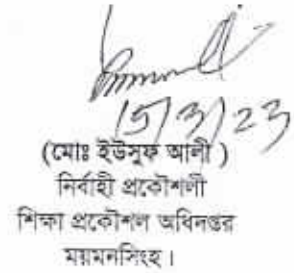 15/3/23
(মোঃ ইউসুফ আলী )
নির্বাহী প্রকৌশলী
শিক্ষা প্রকৌশল অধিদপ্তর
ময়মনসিংহ।